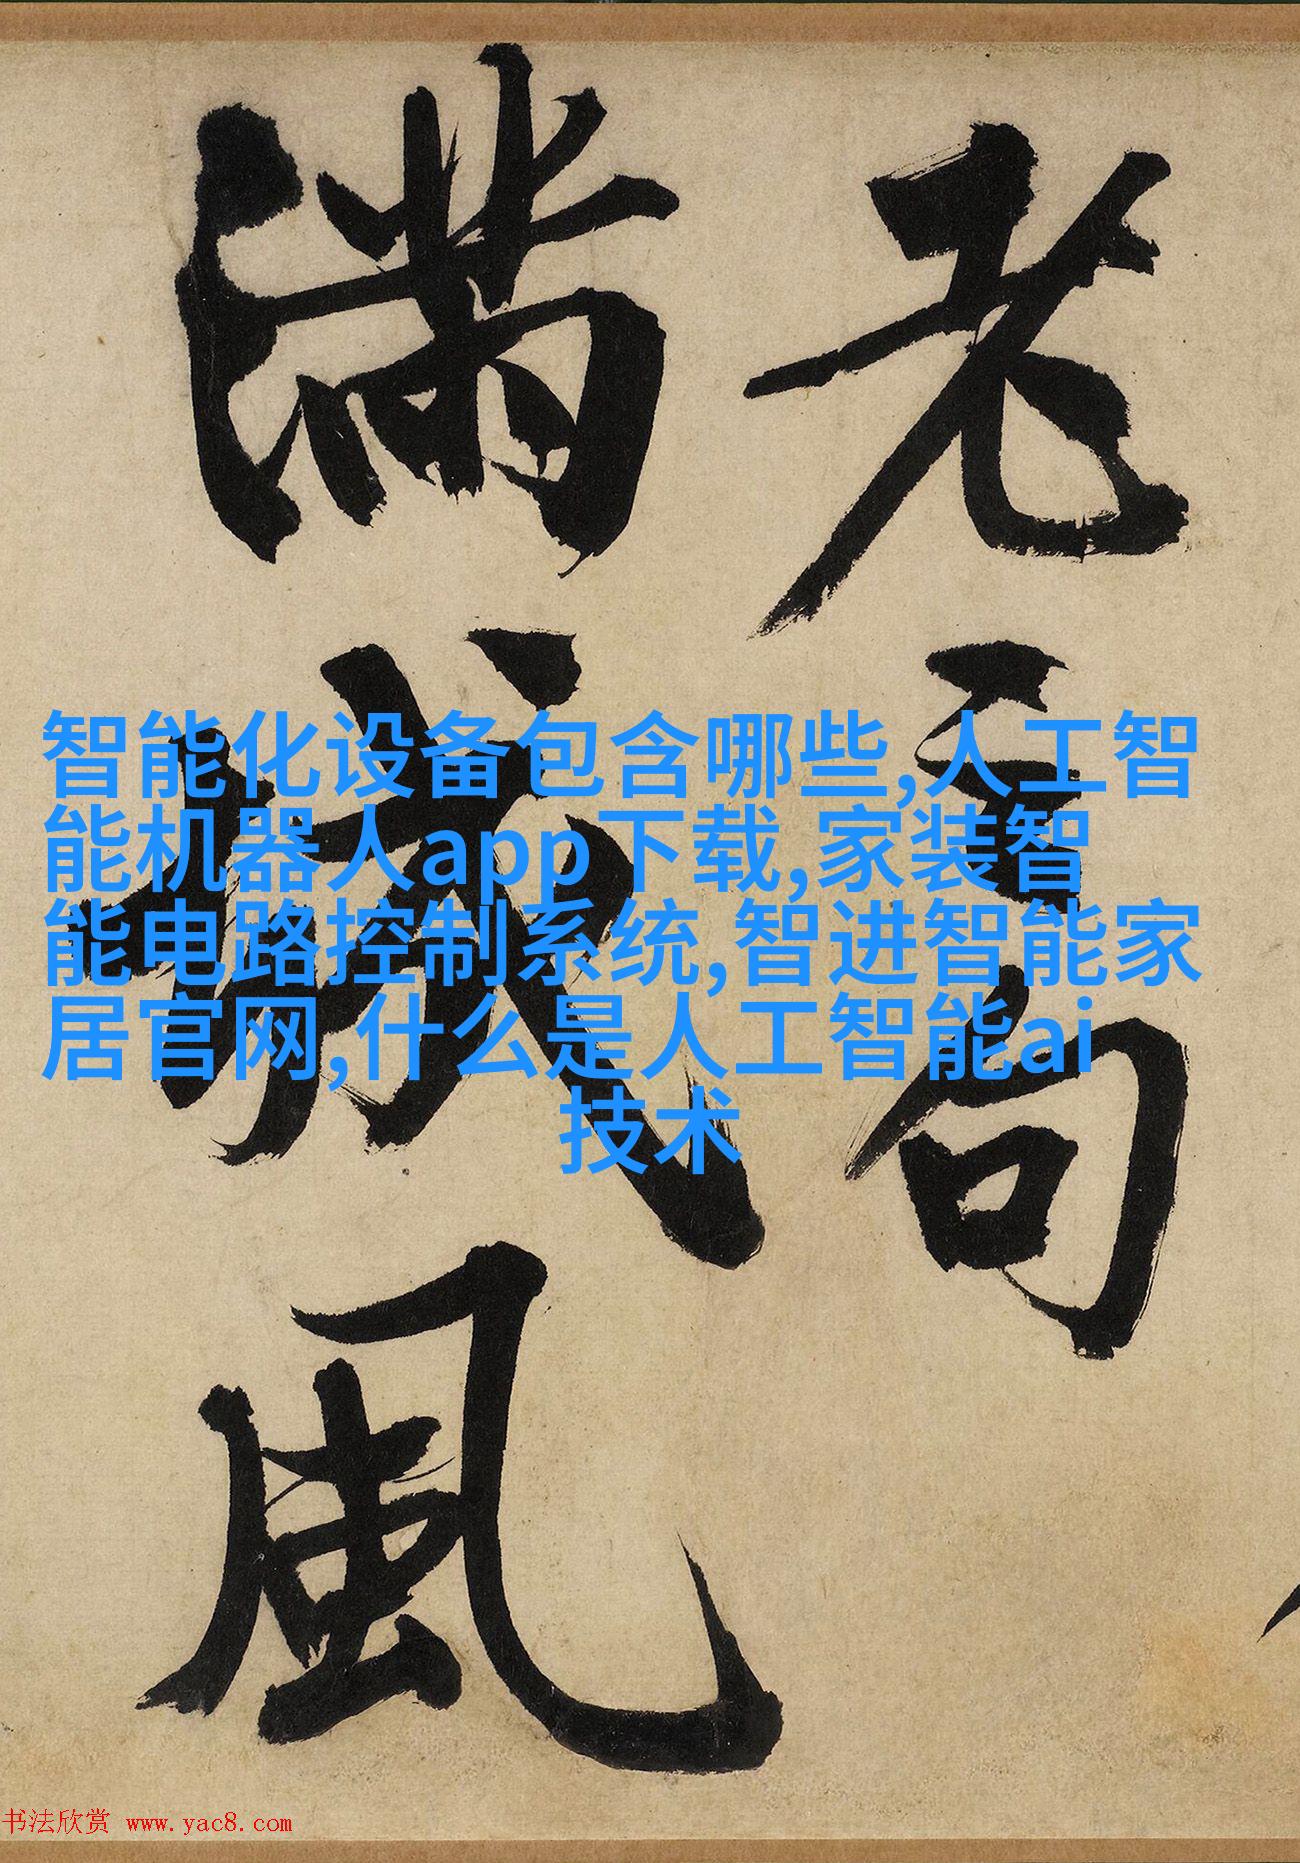 老
句
滿城風
智能化设备包含哪些,人工智
能机器人app下载,家装智
能电路控制系统,智进智能家
居官网,什么是人工智能ai
技术
书法欣赏 www.yac8.com